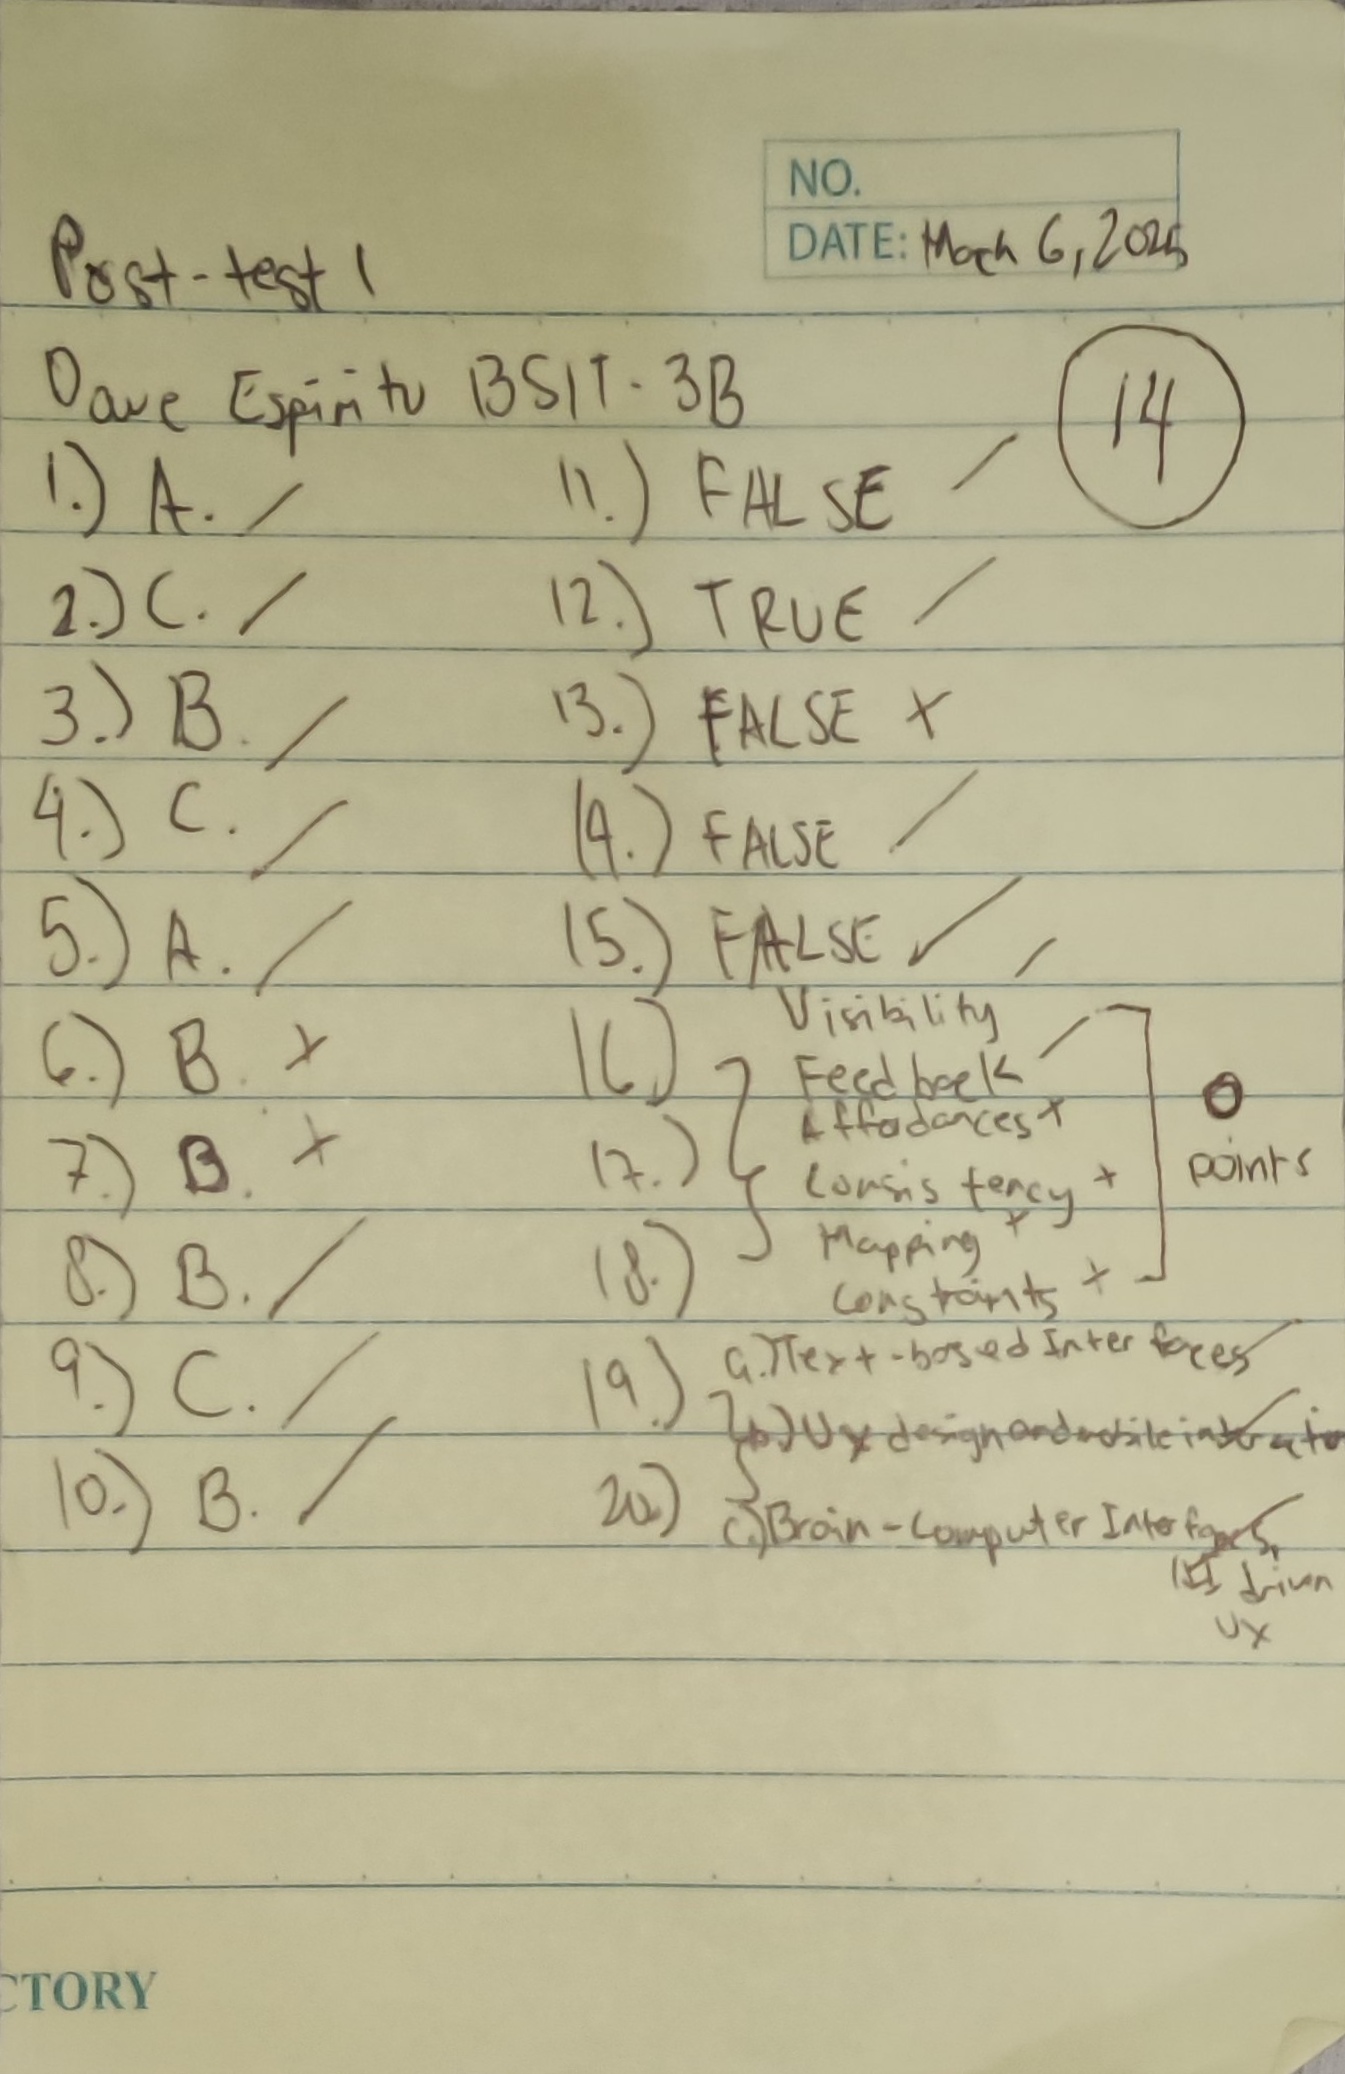 NO.
DATE: March 6, 2025
Post-test 1
Dave Espiritu BSIT-3B
14
1.) A. /
2.) C. /
3.) B. /
4.) C. /
5.) A. /
6.) B. x
7.) B. x
8.) B. /
9.) C. /
10.) B. /
11.) FALSE /
12.) TRUE /
13.) FALSE x
14.) FALSE /
15.) FALSE ✓ /
16.) Visibility
Feedback /
Affordances x
17.) Consistency x
Mapping x
18.) Constraints x
0
points
19.) a.) Text-based Interfaces /
b.) UX design and mobile interaction /
20.) c.) Brain-Computer Interfaces, /
driven
UX
CTORY